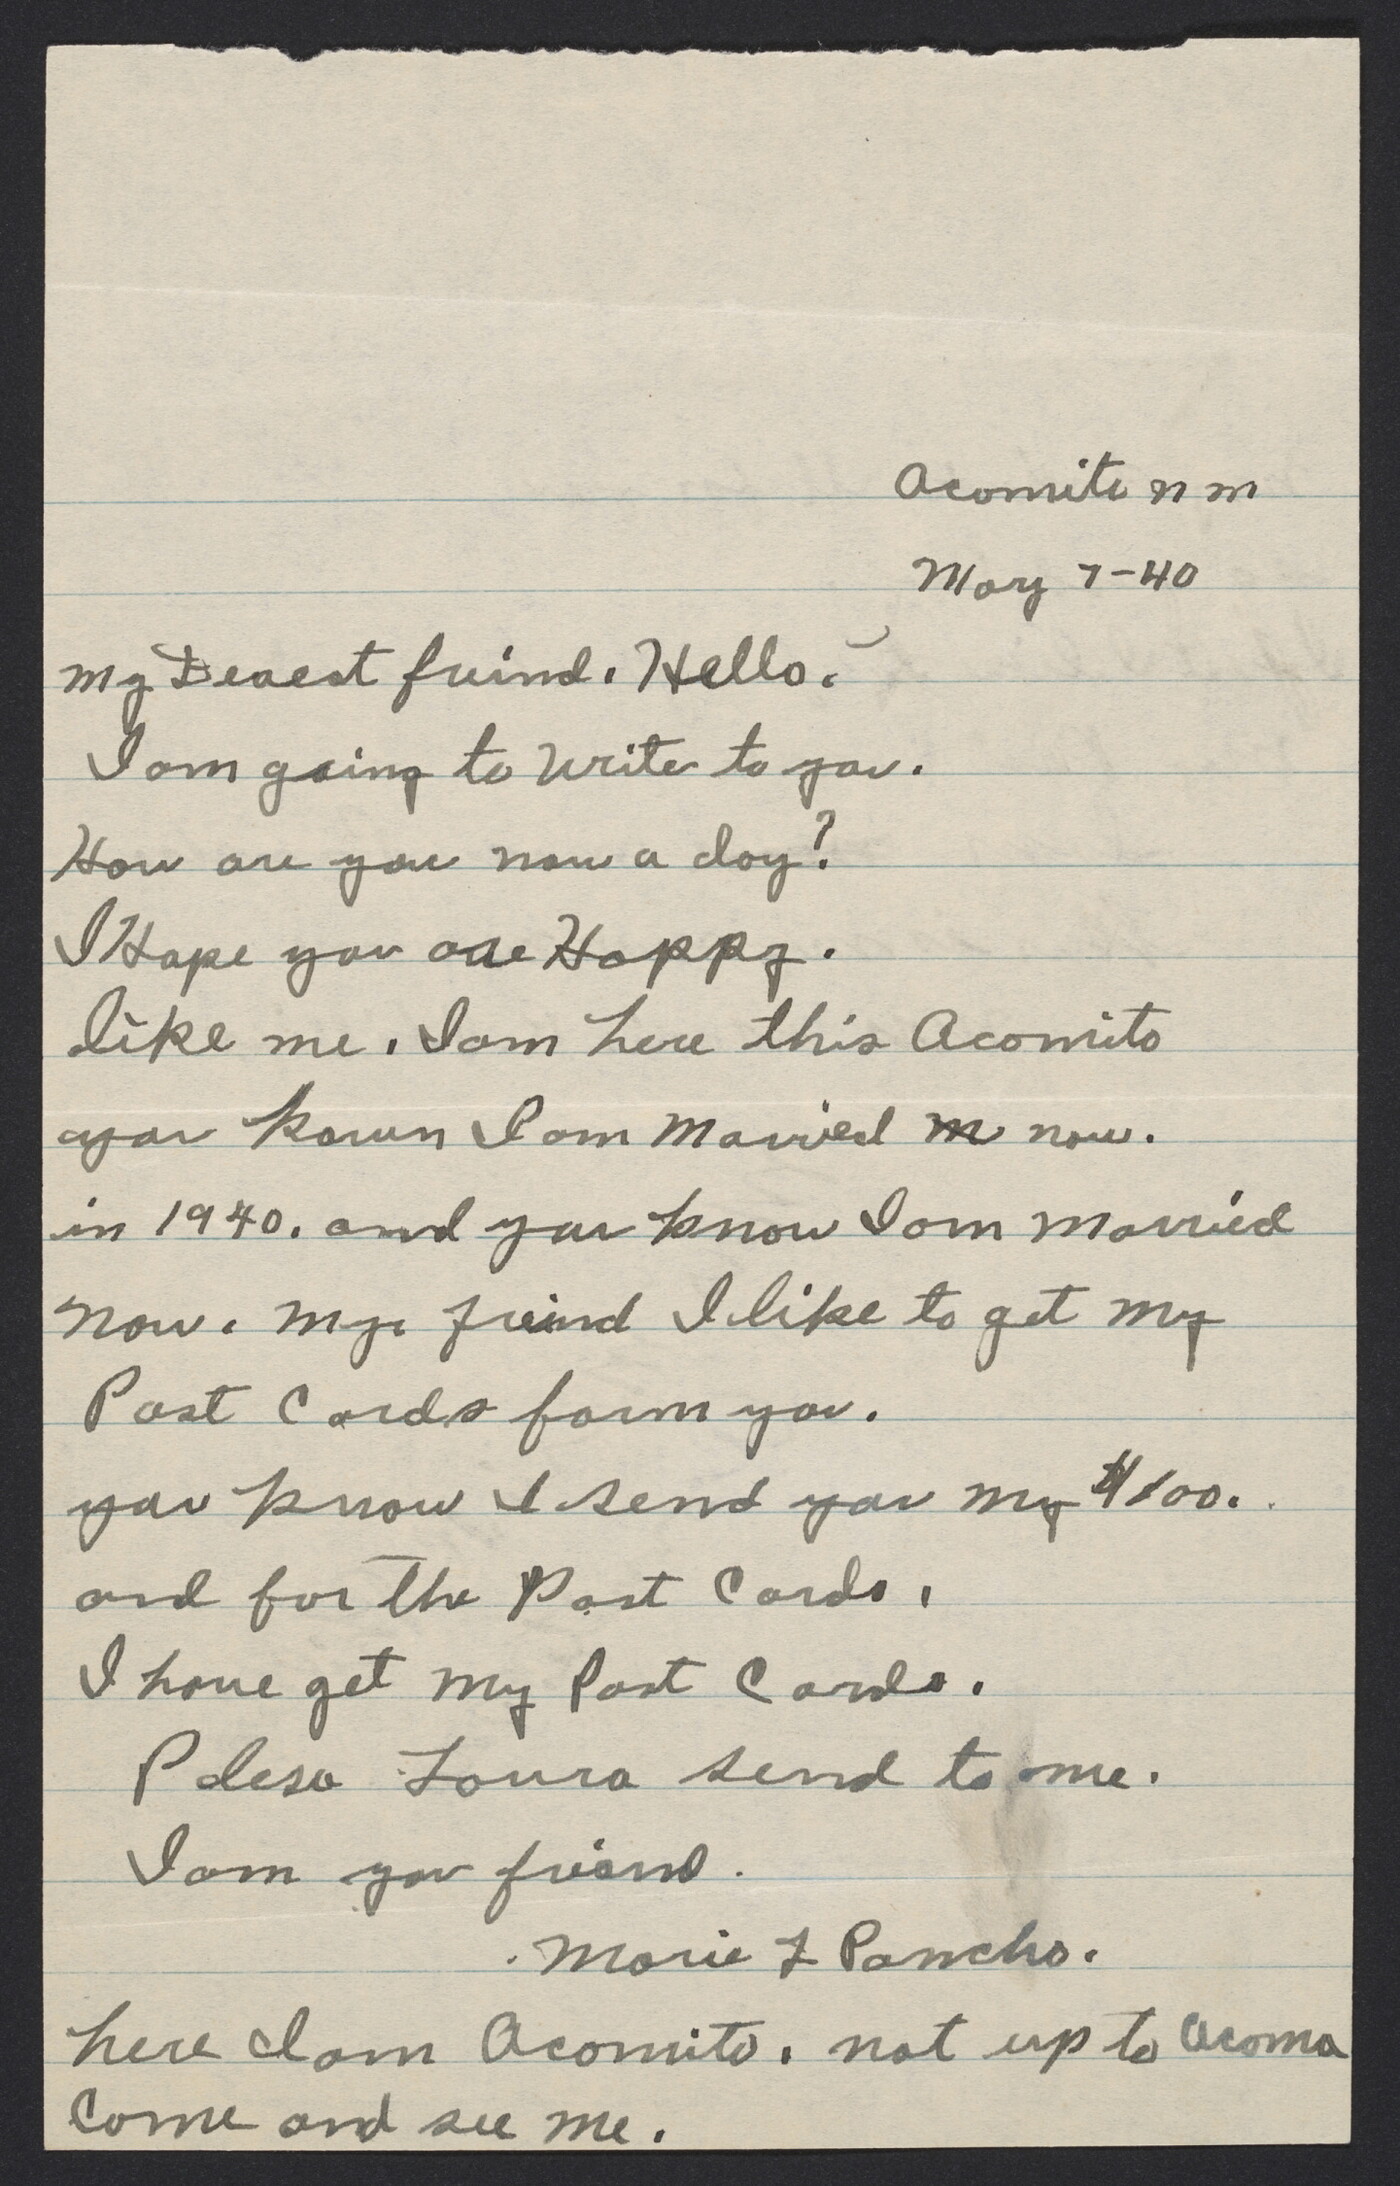 Acomito n m
May 7-40
My Dearest freind. Hello.
I am going to write to you.
How are you now a day?
I Hope you are Happy.
like me. I am here this Acomito
you kown I am Married now.
in 1940. and you know I am married
now. My freind I like to get my
Post Cards form you.
you know I send you my $1.00.
and for the Post Cards.
I have get my Post Cards.
Plesa Laura send to me.
I am you friend.
Marie L Pancho.
here I am Acomito. not up to Acoma
Come and see me.